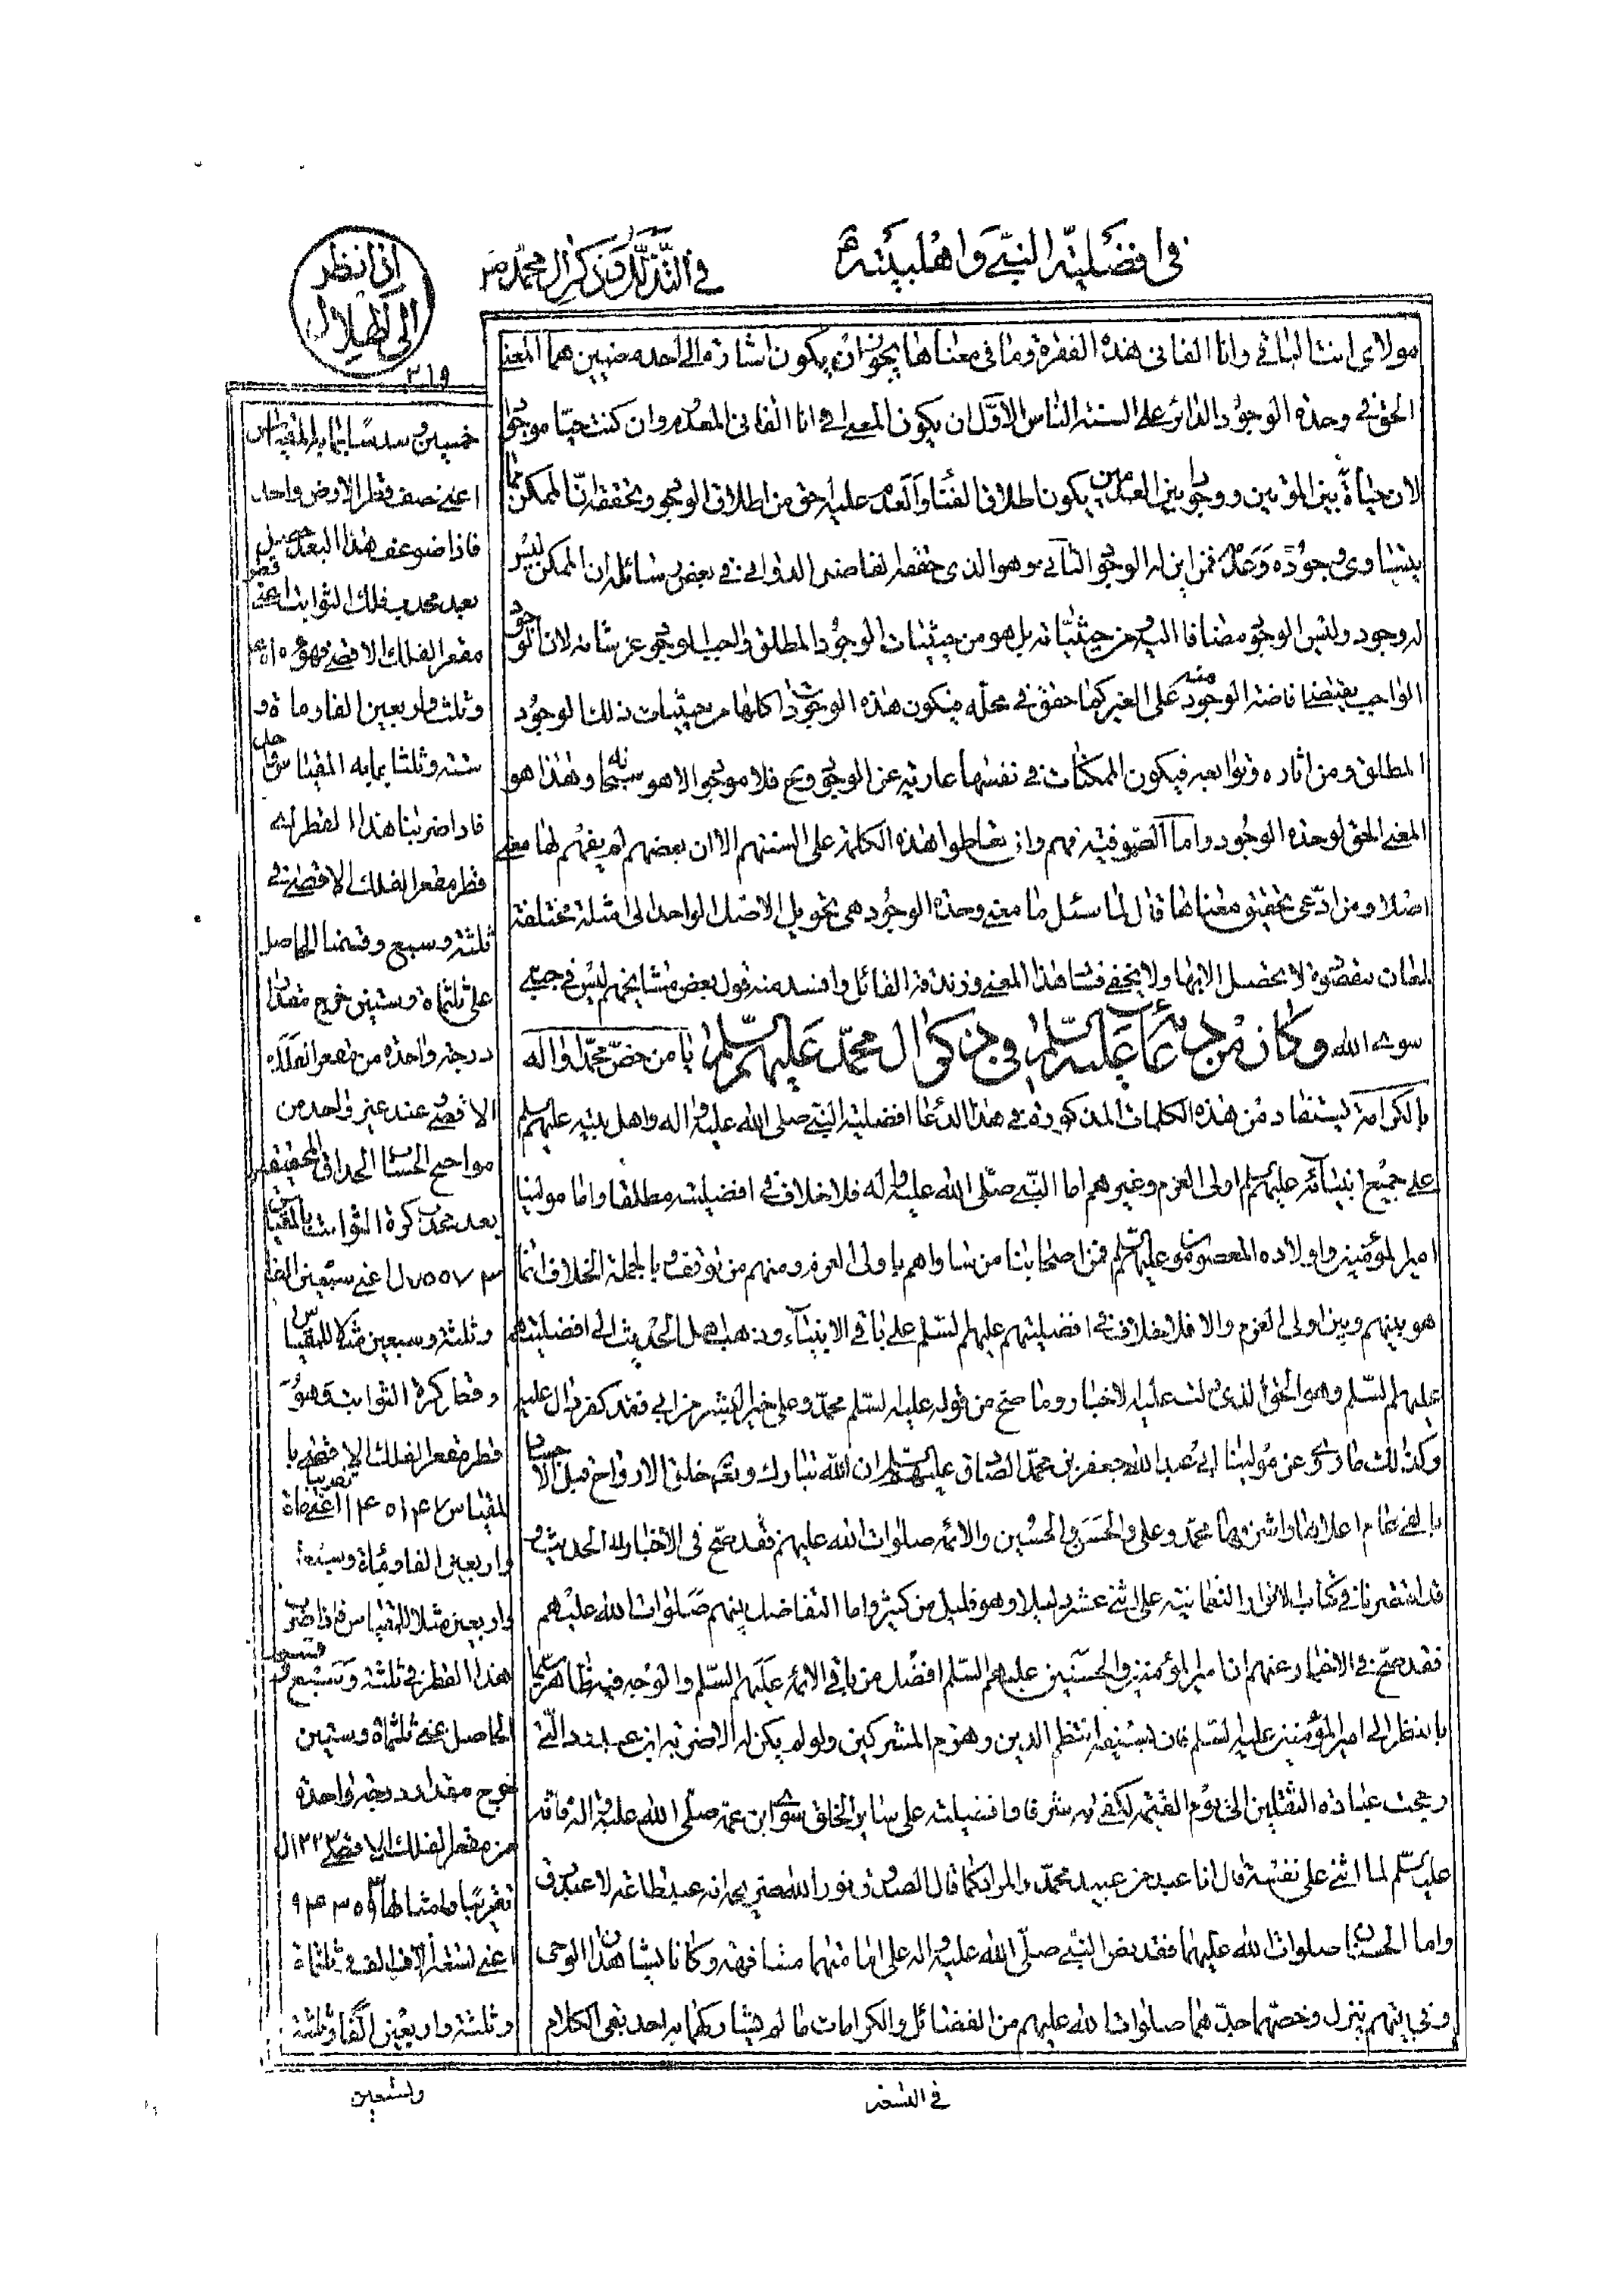 في افضلية النبي و اهلبيته ع
في التذلل و ذكر ال محمد ص
اني انظر
الى الهلال
٣١٩
مولاى انت الباقى وانا الفانى هذه الفقرة وما في معناها يجوز ان يكون اشارة الى احد معنيين هما المعنى
الحق في وحدة الوجود الدائر على السنة الناس الاول ان يكون المعنى انى انا الفانى المعدوم وان كنت حيا موجودا
لان حياة بين الموتين ووجودا بين العدمين يكون اطلاق الفناء والعدم عليه احق من اطلاق الوجود وتحققه انما الممكن ما
يتساوى وجوده وعدمه فمن اين له الوجود الثانى وهو الذى حققه الفاضل الدوانى في بعض رسائله ان الممكن ليس
له وجود وليس الوجود مضافا اليه من حيثياته بل هو من حيثيات الوجود المطلق الواجب الوجود عز شانه لان الوجود
الواجب يقتضى افاضة الوجود منه على الغير كما حقق في محله فيكون هذه الوجودات كلها من حيثيات ذلك الوجود
المطلق ومن اثاره وتوابعه فيكون الممكنات في نفسها عارية عن الوجود وح فلا موجود الا هو سبحانه وهذا هو
المعنى الحق لوحدة الوجود واما الصوفية فهم وان تعاطوا هذه الكلمة على السنتهم الا ان بعضهم لم يفهم لها معنى
اصلا ومن ادعى تحقيق معناها قال لما سئل ما معنى وحدة الوجود هى تحويل الاصل الواحد الى امثلة مختلفة
لمعان مقصودة لا تحصل الا بها ولا يخفى فساد هذا المعنى وزندقة القائل وافسد منه قول بعض مشايخهم ليس في جبتى
سوى الله وكان من دعائه عليه السلم في ذكر ال محمد عليهم السلم يا من خص محمدا واله
بالكرامة يستفاد من هذه الكلمات المذكورة في هذا الدعا افضلية النبي صلى الله عليه واله واهل بيته عليهم السلم
على جميع انبيائه عليهم السلم اولى العزم وغيرهم اما النبي صلى الله عليه واله فلا خلاف في افضليته مطلقا واما مولينا
امير المؤمنين واولاده المعصومون عليهم السلم فمن اصحابنا من ساواهم باولى العزم ومنهم من توقف وبالجملة الخلاف انما
هو بينهم وبين اولى العزم والا فلا خلاف في افضليتهم عليهم السلم على باقى الانبياء وذهب اهل الحديث الى افضليتهم
عليهم السلم وهو الحق الذى دلت عليه الاخبار وما صح من قوله عليه السلم محمد وعلى خير البشر من ابى فقد كفر دال عليه
وكذلك ما روى عن مولينا ابى عبد الله جعفر بن محمد الصادق عليهما السلم ان الله تبارك وتعالى خلق الارواح قبل الاجساد
بالفى عام اعلاها واشرفها محمد وعلى والحسن والحسين والائمة صلوات الله عليهم فقد صح في الاخبار لهذا الحديث و
قد اقتصرنا في كتاب الانوار النعمانية على اثنى عشر دليلا وهو قليل من كثير واما التفاضل بينهم صلوات الله عليهم
فقد صح في الاخبار عنهم ان امير المؤمنين والحسنين عليهم السلم افضل من باقى الائمه عليهم السلم والوجه فيه ظاهر اما
بالنظر الى امير المؤمنين عليه السلم فان بسيفه انتظم الدين وهزم المشركين ولو لم يكن له الا ضربة ابن عبد ود التى
رجحت عبادة الثقلين الى يوم القيمة لكفى به شرفا وافضليته على سائر الخلق سوى ابن عمه صلى الله عليه واله فانه
عليه السلم لما اثنى على نفسه قال انا عبد من عبيد محمد والمراد كما قال الصدوق نور الله ضريحه انه عبد طاعة لا عبد رق
واما الحسنان صلوات الله عليهما فقد نص النبي صلى الله عليه واله على امامتهما مشافهة وكانا يشاهدان الوحى
وفى بيتهم تنزل وخصهما جدهما صلوات الله عليهم من الفضائل والكرامات ما لم يشاركهما به احد بقى الكلام
في التسعة
خمسين وسدسا بما به المقياس
اعنى نصف قطر الارض واحد
فاذا ضوعف هذا البعد حصل
بعد محدب فلك الثوابت اعنى قطر
مقعر الفلك الاقصى فهو
وثلث واربعين الفا ومأة و
ستة وثلثا بما به المقياس واحد
فاذا ضربنا هذا القطر اى
قطر مقعر الفلك الاقصى في
ثلثة وسبع وقسمنا الحاصل
على ثلثمأة وستين خرج مقدار
درجة واحدة من مقعر الفلك
الاقصى عند غير واحد من
الحساب الحذاق المحققين
بعد محدب كرة الثوابت بالمقياس
٧٥٥٧٣ اعنى سبعين الفا
وثلثة وسبعين مثلا للمقياس
وقطر كرة الثوابت وهو
قطر مقعر الفلك الاقصى با
لمقياس ١٤٥١٤٧ تقريبا اعنى مأة
واربعين الفا ومأة وسبعة
واربعين مثلا للمقياس فاذا ضرب
هذا القطر في ثلثة وسبع وقسم
الحاصل على ثلثمأة وستين
خرج مقدار درجة واحدة
من مقعر الفلك الاقصى
تقريبا
اعنى تسعة الاف الف وثلثمأة
وثلثة واربعين الفا وثلثة
وتسعين